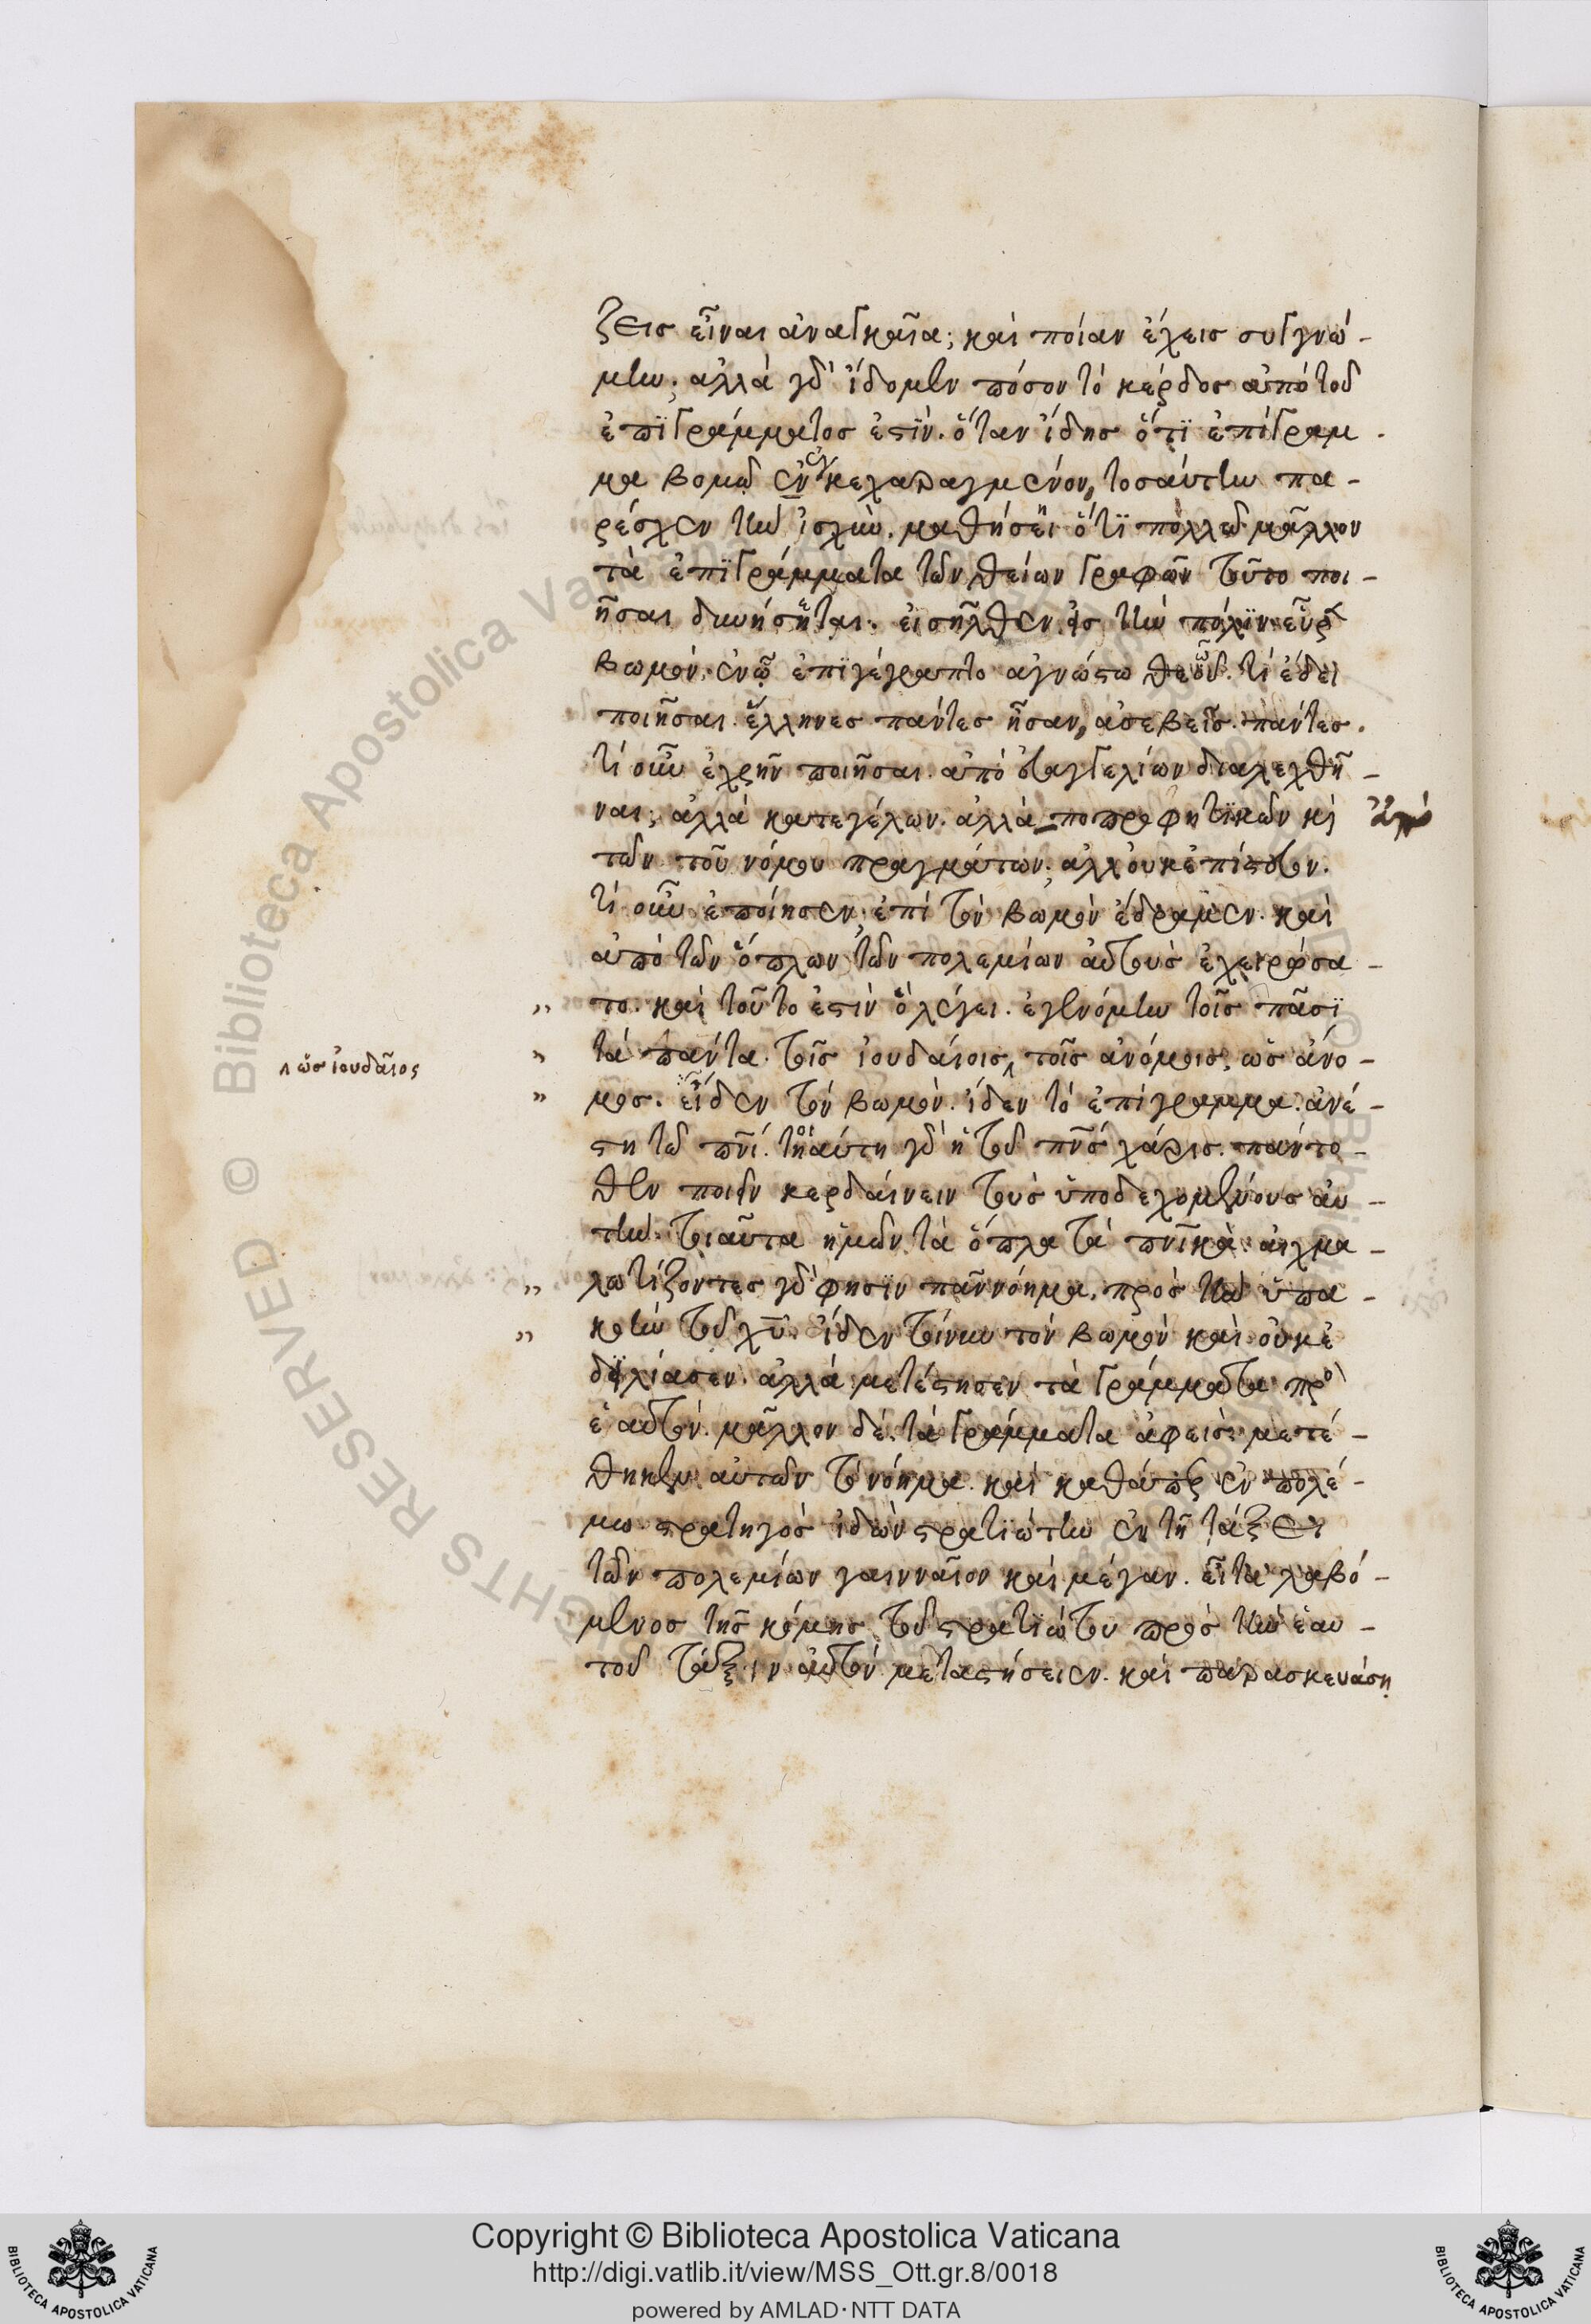 ζεις εἶναι ἀναγκαῖα; καὶ ποίαν ἔχεις συγγνώ-
μην; ἀλλὰ γὰρ ἴδομεν πόσον τὸ κέρδος ἀπὸ τοῦ
ἐπϊγράμματος ἐστϊν. ὅταν ἴδης ὅτϊ ἐπίγραμ-
μα βομῶ ἐν κεχαραγμένον, τοσαύτην πα-
ρέσχεν τὴν ἰσχὺν. μαθήσει ὅτϊ πολλῶ μᾶλλον
τὰ ἐπϊγράμματα τῶν θείων γραφῶν τοῦτο ποι-
ῆσαι δυνήσηται. εἰσῆλθεν εἰς τὴν πόλϊν εὗρε
βωμὸν. ἐν ᾧ ἐπϊγέγραπτο ἀγνώστω θεῶ. τί ἔδει
ποιῆσαι. ἕλληνες πάντες ἦσαν, ἀσεβεῖς πάντες.
τί οὖν ἐχρῆν ποιῆσαι. ἀπὸ εὐαγγελίων διαλεχθῆ-
ναι; ἀλλὰ κατεγέλων. ἀλλὰ πο προφητϊκῶν καὶ ἀπὸ
τῶν τοῦ νόμου πραγμάτων; ἀλλ οὐκ ἐπίστευον.
τί οὖν ἐποίησεν; ἐπὶ τὸν βωμὸν ἔδραμεν. καὶ
ἀπὸ τῶν ὅπλων τῶν πολεμίων αὐτοὺς ἐχειρώσα-
" το. καὶ τοῦτο ἐστὶν ὃ λέγει. ἐγενόμην τοῖς πᾶσϊ
" τὰ πάντα. τοῖς ἰουδαίοις, τοῖς ἀνόμοις, ὡς ἄνο-
ὡς ἰουδαῖος
" μος. εἶδεν τὸν βωμὸν. ἴδεν τὸ ἐπίγραμμα. ἀνέ-
στη τῶ πνι. τοιαύτη γὰρ ἡ τοῦ πνς χάρις. πάντο-
θεν ποιεῖν κερδαίνειν τοὺς ὑποδεχομένους αὐ-
τὴν. τοιαῦτα ἡμῶν τὰ ὅπλα τὰ πνικὰ. αἰχμα-
" λωτίζοντες γὰρ φησϊν πᾶν νόημα, πρὸς τὴν ὑπα-
" κοὴν τοῦ χυ. ἴδεν τοίνυν τὸν βωμὸν καὶ οὐκ ἐ
δειλίασεν. ἀλλὰ μετέστησεν τὰ γράμματα πρὸς
ἑαυτὸν. μᾶλλον δὲ. τὰ γράμματα ἀφεὶς μετέ-
θηκεν αὐτῶν τὸ νόημα. καὶ καθάπερ ἐν πολέ-
μω στρατηγὸς ἰδὼν στρατϊώτην ἐν τῆ τάξει
τῶν πολεμίων γαινναῖον καὶ μέγαν. εἶτα λαβό-
μενος τῆς κόμης τοῦ στρατϊώτου πρὸς τὴν ἑαυ-
τοῦ τάξιν αὐτὸν μεταστήσειεν. καὶ παρασκευάση
Copyright © Biblioteca Apostolica Vaticana
http://digi.vatlib.it/view/MSS_Ott.gr.8/0018
powered by AMLAD·NTT DATA